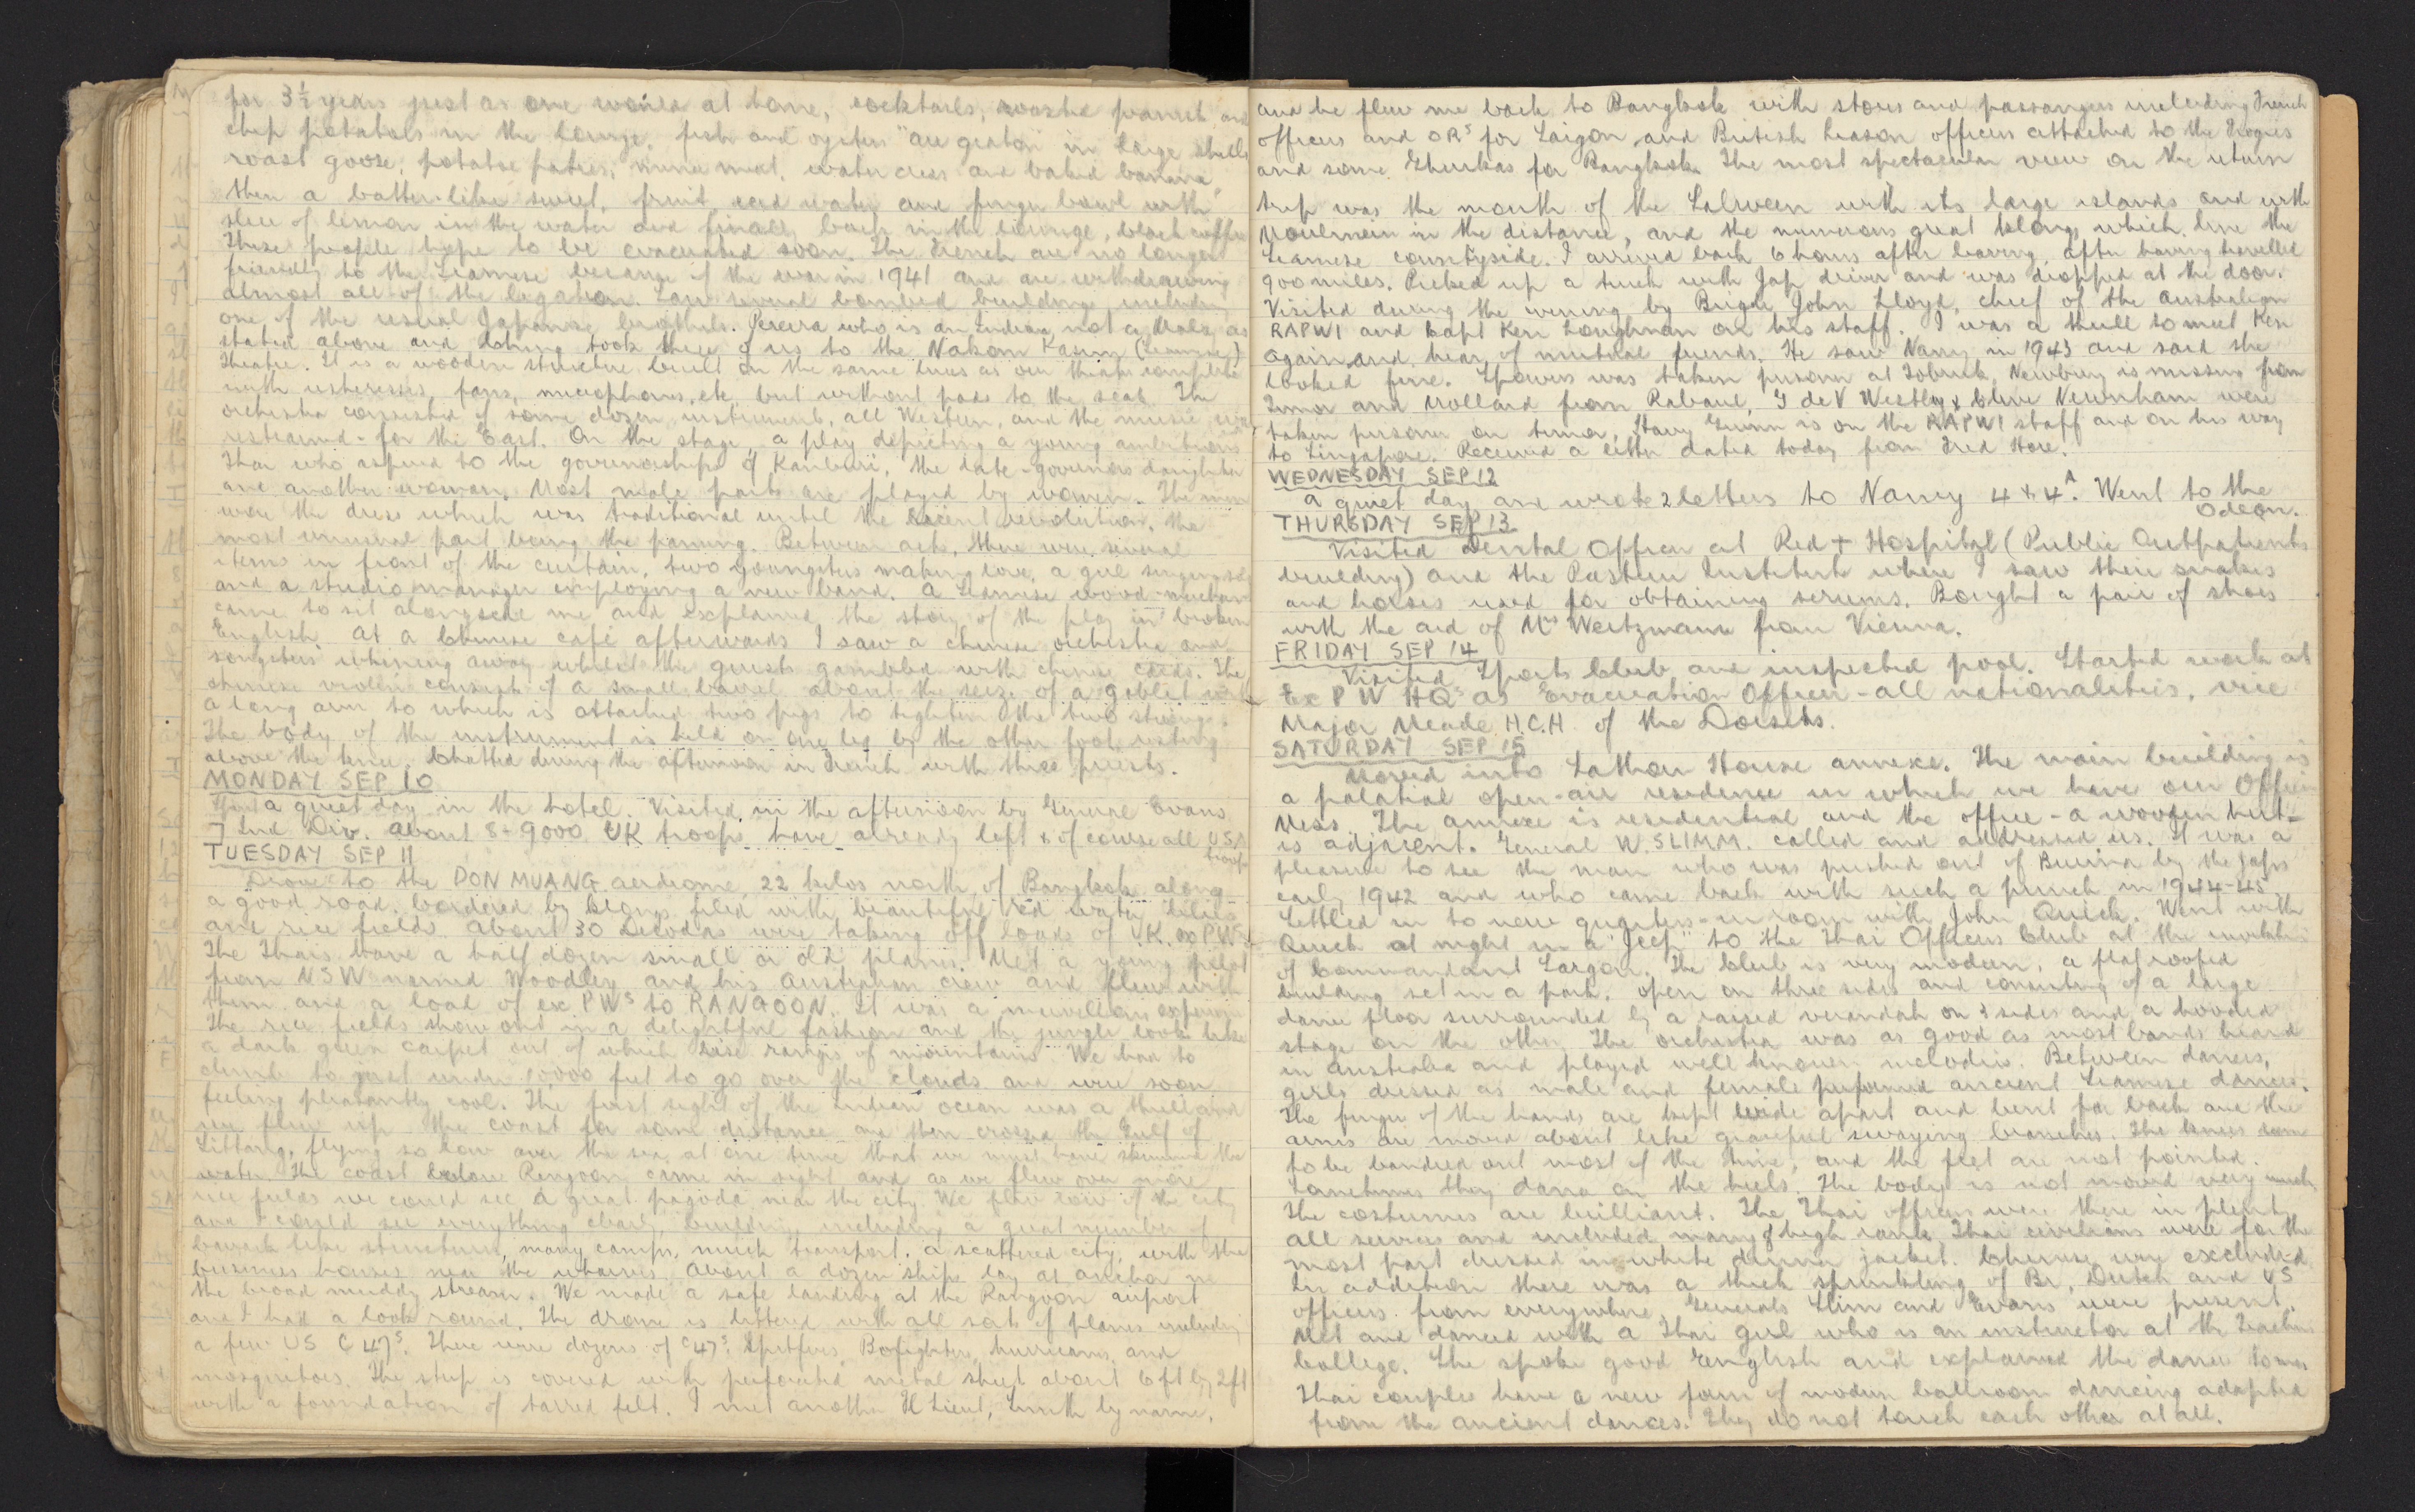 for 3½ years just as one would at home, cocktails, roasted peanuts and
chip potatoes in the lounge, fish and oysters "au gratin" in large shells
roast goose, potatoe patties, mince meat, water cress and baked banana,
then a batter-like sweet, fruit, iced water and finger bowl with
slice of lemon in the water and finally back in the lounge, black coffee
These people hope to be evacuated soon. The French are no longer
friendly to the Siamese because of the war in 1941 and are withdrawing
almost all of the legation. Saw several bombed buildings including
one of the usual Japanese brothels. Pereira who is an Indian not a as
stated above and took three of us to the Nakon Kasem (Siamese)
theatre. It is a wooden structure built on the same lines as our theatres complete
with usheresses, fans, microphones, etc, but without pads to the seats. The
orchestra consisted of some dozen instruments, all Western, and the music was
restrained - for the East. On the stage, a play depicting a young ambitious
Thai who aspired to the governorship of Kanburi, the late-governors daughter
and another woman. Most male parts are played by women. The men
wore the dress which was traditional until the recent revolution, the
most unusual part being the panung. Between acts, there were several
items in front of the curtain, two youngsters making love, a girl singing solo
and a studio manager employing a new band. A Siamese wood-merchant
came to sit alongside me and explained the story of the play in broken
English. At a Chinese café afterwards I saw a chinese orchestra and
songsters whining away whilst the guests gambled with chinese cards. The
chinese violin consists of a small barrel about the size of a goblet with
a long arm to which is attached two pegs to tighten the two strings.
The body of the instrument is held on one leg by the other foot resting
above the knee. Chatted during the afternoon in French with three priests.
MONDAY SEP 10
Spent a quiet day in the hotel. Visited in the afternoon by General Evans
7 Ind Div. About 8-9000 UK troops have already left & of course all USA
troops
TUESDAY SEP 11
Drove to the DON MUANG aerdrome, 22 kilos north of Bangkok along
a good road, bordered by klongs filled with beautiful red water lilies
and rice fields. About 30 Dakotas were taking off loads of UK ex PWs
The Thais have a half dozen small or old planes. Met a young pilot
from NSW named Woodley and his Australian crew and flew with
them and a load of ex PWs to RANGOON. It was a marvellous experience
The rice fields show out in a delightful fashion and the jungle looks like
a dark green carpet out of which rise ranges of mountains. We had to
climb to just under 10,000 feet to go over the clouds and were soon
feeling pleasantly cool. The first sight of the Indian ocean was a thrill and
we flew up the coast for some distance and then crossed the Gulf of
Sittang, flying so low over the sea at one time that we must have skimmed the
water. The coast below Rangoon came in sight and as we flew over more
rice fields we could see a great pagoda near the city. We flew low of the city
and I could see everything clearly, buildings including a great number of
barrack like structures, many camps, much transport. A scattered city, with the
business houses near the wharves. About a dozen ships lay at anchor in
the broad muddy stream. We made a safe landing at the Rangoon airport
and I had a look round. The drome is littered with all sorts of planes including
a few US C47s. There were dozens of C47s, Spitfires, Bofighters, hurricanes, and
mosquitoes. The strip is covered with perforated metal sheets about 6ft by 2ft
with a foundation of tarred felt. I met another Fl Lieut, Smith by name,
and he flew me back to Bangkok with stores and passangers including French
officers and ORs for Saigon and British liason officers attached to the Frogies
and some Ghurkas for Bangkok. The most spectacular view on the return
trip was the mouth of the Salween with its large islands and with
Moulmein in the distance, and the numerous great klongs which line the
Siamese countryside. I arrived back 6 hours after leaving, after having travelled
900 miles. Picked up a truck with Jap driver and was dropped at the door.
Visited during the evening by Brigdr John Lloyd, chief of the Australian
RAPWI and Capt Ken Loughnan on his staff. I was a thrill to meet Ken
again and hear of mutual friends. He saw Nancy in 1943 and said she
looked fine. Spowers was taken prisoner at Tobruk, Newbury is missing from
Timor and Mollard from Rabaul, G de V Westley & Clive Newnham were
taken prisoner on timor. Harry Gunn is on the RAPWI staff and on his way
to Singapore. Received a letter dated today from Fred Hore.
WEDNESDAY SEP 12
A quiet day and wrote 2 letters to Nancy 4 & 4A. Went to the
Odeon.
THURSDAY SEP 13
Visited Dental Officer at Red + Hospital (Public Outpatients
building) and the Pasteur Institute where I saw their snakes
and horses used for obtaining serums. Bought a pair of shoes
with the aid of Mrs Weitzmann from Vienna.
FRIDAY SEP 14
Visited Sports Club and inspected pool. Started work at
Ex P W HQs as Evacuation Officer - all nationalities, vice
Major Meade H.C.H. of the Dorsets.
SATURDAY SEP 15
Moved into Sathon House annexe. The main building is
a palatial open-air residence in which we have our Officers
Mess. The annexe is residential and the office - a wooden hut -
is adjacent. General W. SLIMM. called and addressed us. It was a
pleasure to see the man who was pushed out of Burma by the Japs
early 1942 and who came back with such a punch in 1944-45.
Settled in to new quarters - in room with John Quick. Went with
Quick at night in a "Jeep" to the Thai Officers Club at the invitation
of Commandant Sargon. The Club is very modern, a flat roofed
building set in a park, open on three sides and consisting of a large
dance floor surrounded by a raised verandah on 3 sides and a hooded
stage on the other. The orchestra was as good as most bands heard
in Australia and played well known melodies. Between dances,
girls dressed as male and female performed ancient Siamese dances.
The fingers of the hands are kept wide apart and bent far back and the
arms are moved about like graceful swaying branches. The knees seem
to be bandied out most of the time, and the feet are not pointed.
Sometimes they dance on the heels. The body is not moved very much
The costumes are brilliant. The Thai officers were there in plenty
all services and included many of high rank. Thai civilians were for the
most part dressed in white dinner jacket. Chinese were excluded.
In addition there was a thick sprinkling of Br, Dutch and US
officers from everywhere. Generals Slim and Evans were present.
Met and danced with a Thai girl who is an instructor at the Teachers
College. She spoke good English and explained the dances to me.
Thai couples have a new form of modern ballroom dancing adapted
from the ancient dances. They do not touch each other at all.